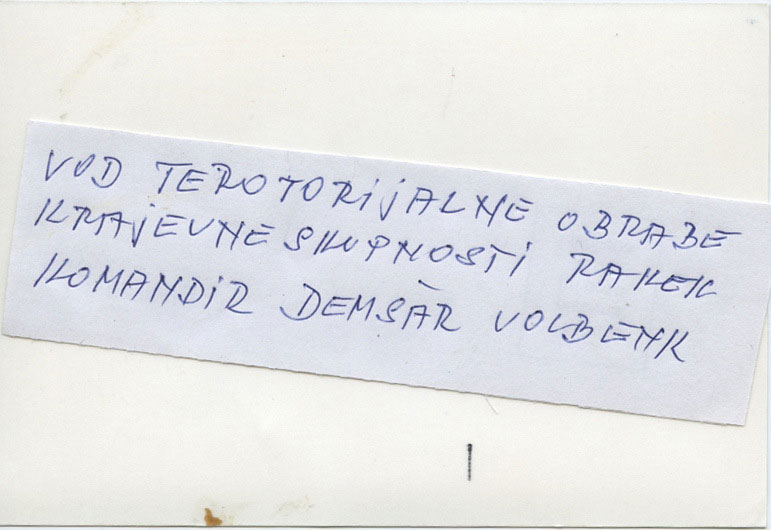 VOD TEROTORIJALNE OBRABE
KRAJEVNE SKUPNOSTI RAKEK
KOMANDIR DEMŠAR VOLBENK